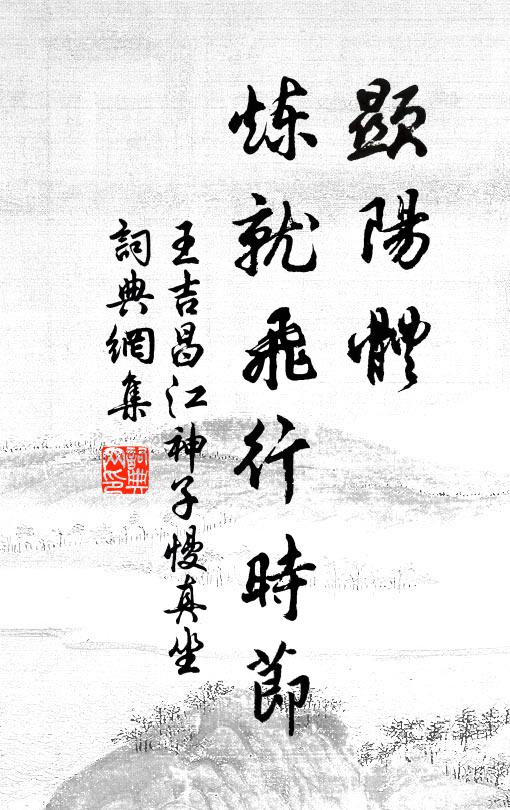 顯陽體
煉就飛行時節
王吉昌江神子慢真坐
詞典網集
詞典
网印